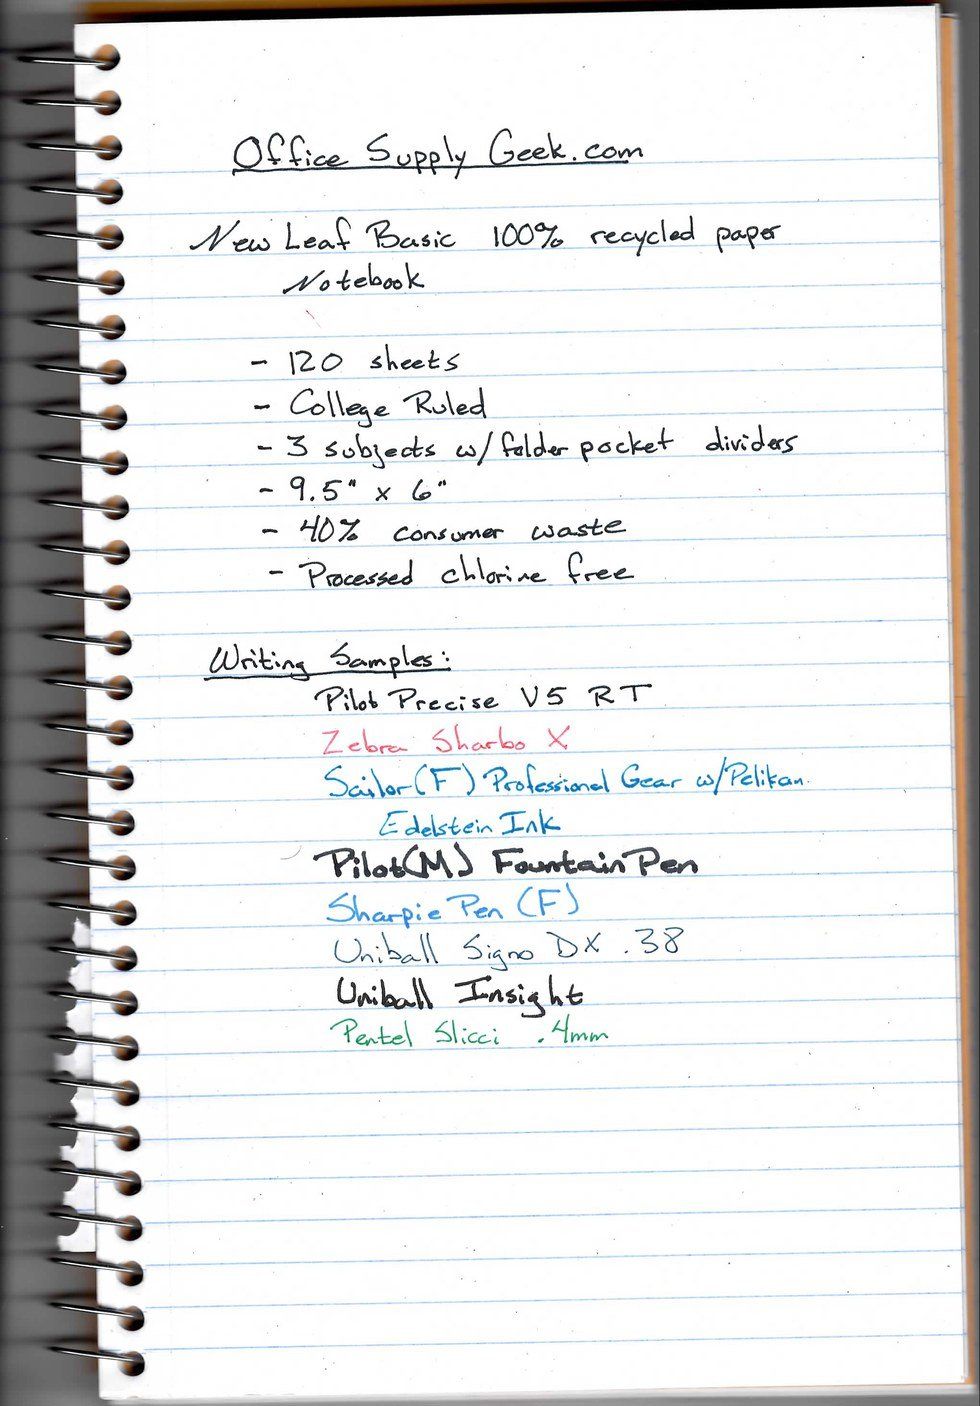 Office Supply Geek.com
New Leaf Basic 100% recycled paper
Notebook
- 120 sheets
- College Ruled
- 3 subjects w/ folder pocket dividers
- 9.5" x 6"
- 40% consumer waste
- Processed chlorine free
Writing Samples:
Pilot Precise V5 RT
Zebra Sharbo X
Sailor (F) Professional Gear w/Pelikan
Edelstein Ink
Pilot (M) Fountain Pen
Sharpie Pen (F)
Uniball Signo DX .38
Uniball Insight
Pentel Slicci .4mm